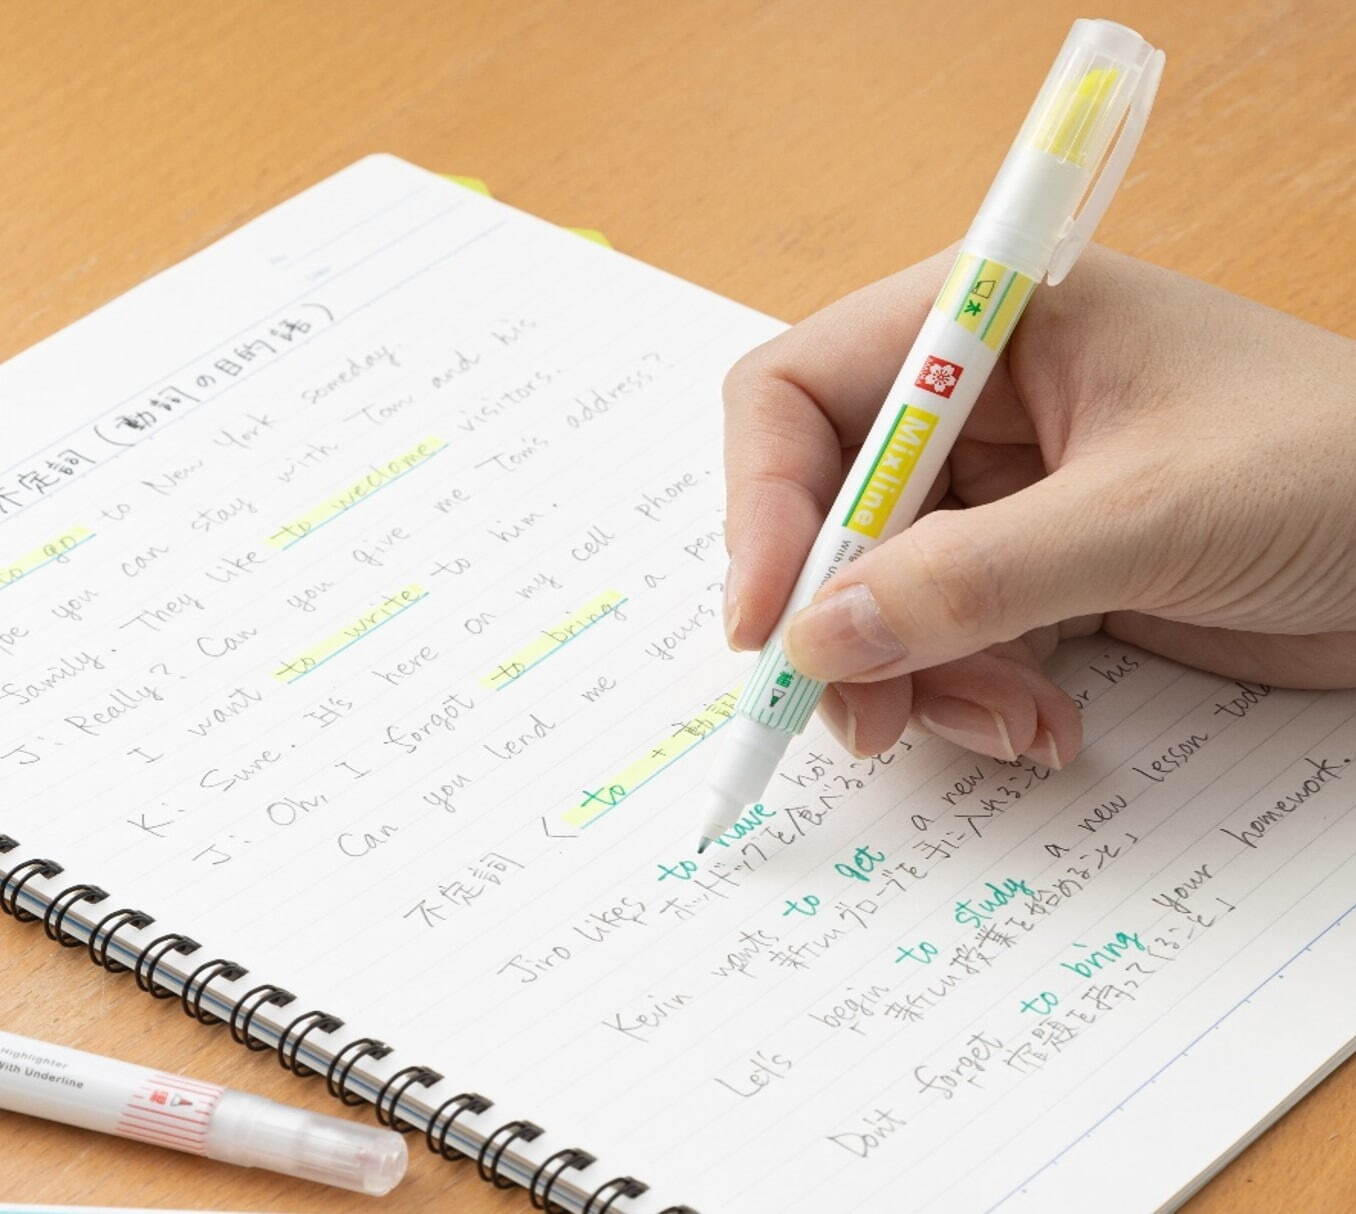 不定詞 (動詞の目的語)
to go to New York someday.
pe you can stay with Tom and his
family. They like to weclome visitors.
J: Really? Can you give me Tom's address?
I want to write to him.
K: Sure. It's here on my cell phone.
J: Oh, I forgot to bring a pen
Can you lend me yours?
不定詞 〈 to + 動詞
Jiro likes to have hot
ホットドッグを食べること」
Kevin wants to get a new for his
新しいグローブを手に入れること
Let's begin to study a new lesson toda
「新しい授業を始めること」
Don't forget to bring your homework.
「宿題を持ってくること」
太
Mixline
With Un
細
Highlighter
With Underline
細